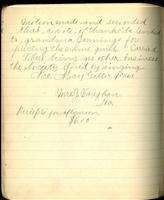 Motion made and seconded
that a vote of thanks be tendered
to grandma Jennings for
piecing the the quilt. Carried.
There being no other business
the Society closed by singing
Mrs. Mary Geller Pres.
Mrs J. Vaughan
Sec.
Receipts for afternoon